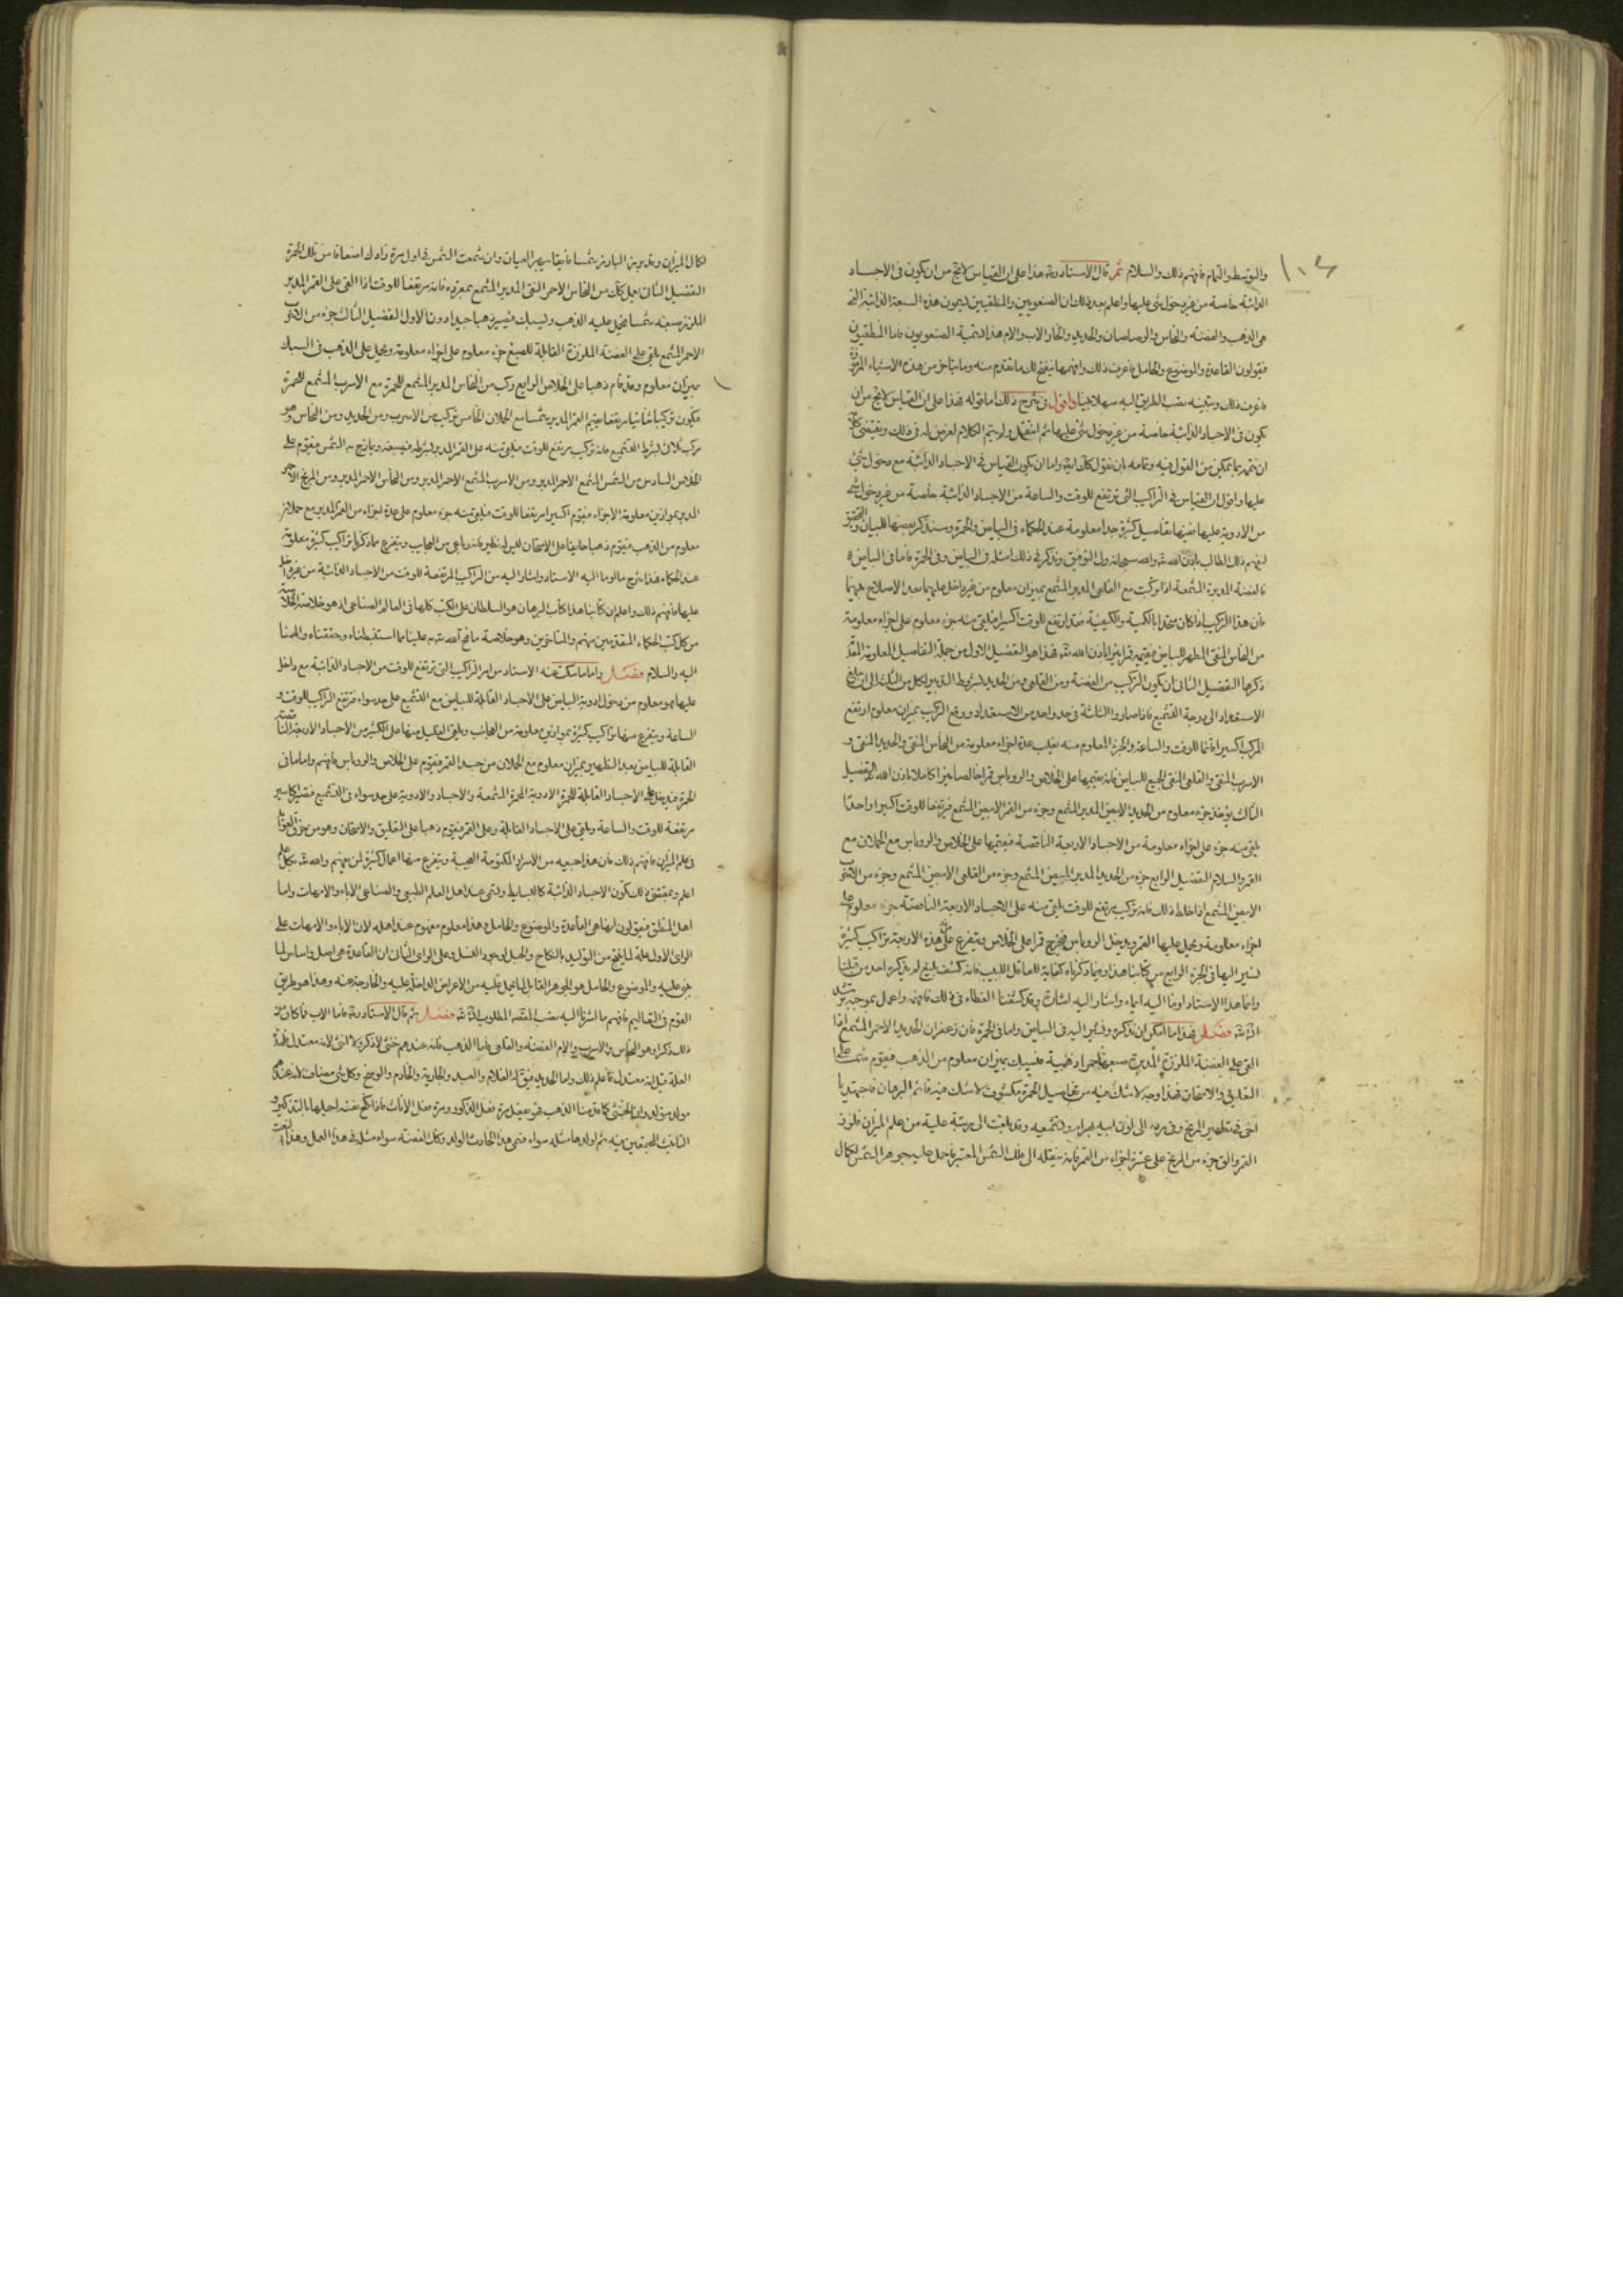 ١٠٤
والتوسط والتمام فافهم ذلك والسلام ثم قال الاستاد رحمه هذا على ان القياس لا يخ من ان يكون فى الاجساد
الذائبة خاصة من غير دخول شئ عليها واعلم بعد ذلك ان الصنعويين والمنطقيين يسمون هذه السبعة الذائبة التى
هى الذهب والفضة والنحاس والرصاصان والحديد والخار الاب والام هذا تسمية الصنعويون فاما المنطقيين
فيقولون القاعدة والموضوع والحامل فاعرف ذلك وافهمها ينفتح لك ما تقدم منه وما يتأخر من هذه الاشياء
فاعرف ذلك وتبينه تصب الطريق اليه سهلا هينا واقول فى شرح ذلك اما قوله هذا على ان القياس لا يخ من ان
يكون فى الاجساد الذائبة خاصة من غير دخول شئ عليها ثم انتقل ولم يتم الكلام لغرض له فى ذلك
ان نتمه بما يمكن من القول فيه وتمامه بان نقول واما ان يكون القياس فى الاجساد الذائبة مع دخول شئ
عليها واقول ان القياس فى التراكيب التى ترتفع للوقت والساعة من الاجساد الذائبة خاصة من غير دخول شئ
من الادوية عليها تفاصيل كثيرة جدا معلومة عند الحكماء فى البياض والحمرة وسنذكر بعضها للبيان
ليفهم ذلك الطالب باذن الله والله سبحانه ولى التوفيق ونذكر فى ذلك امثلة فى البياض وفى الحمرة فاما فى البياض
فالفضة المدبرة المشمعة اذا ركبت مع القلعى المدبر المشمع بميزان معلوم من غير داخل عليهما بعد الاصلاح فيهما
فان هذا التركيب اذا كان متحدا بالكمية والكيفية فقد ارتفع للوقت اكسيرا فيلقى منه جزء معلوم على اجزاء معلومة
من النحاس المنقى المطهر للبياض فيقيمه قمرا باذن الله فهذا هو التفصيل الاول من جملة التفاصيل المعلومة
ذكرها التفصيل الثانى ان يكون التركيب من الفضة ومن القلعى ومن الحديد بشروط التدبير لكل من الثلثة الى ان
الاستعداد الى درجة التشميع فاذا صاروا الثلثة فى حد واحد من الاستعداد ووقع التركيب بميزان معلوم ارتفع
المركب اكسيرا للوقت والساعة والجزء المعلوم منه يقلب عدة اجزاء معلومة من النحاس المنقى والحديد المنقى و
الاسرب المنقى والقلعى المنقى الجميع للبياض فانه يقيمها على الخلاص والروباس قمرا خالصا كاملا باذن الله التفصيل
الثالث يؤخذ جزء معلوم من الحديد الابيض المدبر المشمع وجزء من القمر الابيض المشمع فيرتفعا للوقت اكسيرا واحدا
يلقى منه جزء على اجزاء معلومة من الاجساد الاربعة الناقصة فيقيمها على الخلاص والروباس مع الحملان مع
القمر والسلام التفصيل الرابع جزء من الحديد المدبر المبيض المشمع وجزء من القلعى الابيض المشمع وجزء من
الابيض المشمع اذا خلط ذلك فانه تركيب يرتفع للوقت يلقى منه على الاجساد الاربعة الناقصة جزء معلوم على
اجزاء معلومة ويحمل عليها القمر ويدخل الروباس فيخرج قمرا على الخلاص ويتفرع على هذه الاربعة تراكيب كثيرة
نشير اليها فى الجزء الرابع من كتابنا هذا وفيما ذكرناه كفاية للعاقل اللبيب فانه كشف بليغ لم يذكره احد من قبلنا
وانما هذا الاستاد اومأ اليه ايماء واشار اليه اشارة وقد كشفنا الغطاء فى ذلك فافهمه واعمل بموجبه
فصل فهذا ما امكن ان نذكره ونشير اليه فى البياض واما فى الحمرة فان زعفران الحديد الاحمر المشمع اذا
القى على الفضة الملززة المدبرة صبغها احمرا ذهبية فيسبك بميزان معلوم من الذهب فيقوم شمسا على
التعليق والامتحان فهذا وجه لا شك فيه من تفاصيل الحمرة مكشوف لا شك فيه قائم البرهان فاجتهد يا
اخى فى تطهير المريخ وفى رده الى لون ابيه بهرام وتشميعه وقد بلغت الى مرتبة علية من علم الميزان
القمر والق جزء من المريخ على عشرة اجزاء من القمر فانه ينقله الى فلك الشمس المعتبر جوهر الشمس لكمال
لكمال الميزان وتدبيره الباد شمسا العيان وان شمعت الشمس فى اول مرة زادك اضعافا من تلك الحمرة
التفصيل الثانى من النحاس الاحمر النقى المدبر المشمع بمفرده فانه يرتفعا للوقت اذا القى على القمر المدبر
الملزز صبغه شمسا يحمل عليه الذهب ويسبك فيصير ذهبا جيدا دون الاول التفصيل الثالث جزء من
الاحمر المشمع يلقى على الفضة الملززة القابلة للصبغ جزء معلوم على اجزاء معلومة ويحمل على الذهب فى السبك
بميزان معلوم وقد قام ذهبا على الخلاص الرابع ركب من النحاس المدبر المشمع للحمرة مع الاسرب المشمع للحمرة
فيكون تركيبا يرتفعا يقيم القمر المدبر شمسا مع الحملان الخامس تركيب من الاسرب ومن الحديد ومن النحاس
بشرط التشميع فانه تركيب يرتفع للوقت فيلقى منه على القمر المدبر بشرطه فيصبغه ويمازج به الشمس فيقوم على
الخلاص السادس من الشمس المشمع الاحمر المدبر ومن الاسرب المشمع الاحمر المدبر ومن النحاس الاحمر المدبر ومن المريخ
المدبر بموازين معلومة الاجزاء فيقوم اكسيرا مرتفعا للوقت فيلقى منه جزء معلوم على عدة اجزاء من القمر المدبر مع حملان
معلوم من الذهب فيقوم ذهبا على الامتحان ليس له نظير فانه باعلى من العجايب ويتفرع مما ذكرنا تراكيب كثيرة معلومة
عند الحكماء فهذا شرح ما اوما اليه الاستاد واشار اليه من التراكيب المرتفعة للوقت من الاجساد الذائبة من غير داخل
عليها فافهم ذلك واعلم ان كتابنا هذا كتاب البرهان هو السلطان على الكتب كلها فى العالم الصناعى اذ هو خلاصة
من كل كتب الحكماء المتقدمين منهم والمتأخرين وهو خلاصة ما فتح الله به علينا مما استنبطناه وحققناه والهمنا
اليه والسلام فصل واما ما سكت عنه الاستاد من امر التراكيب التى ترتفع للوقت من الاجساد الذائبة مع داخل
عليها فهو معلوم من دخول ادوية البياض على الاجساد القابلة للبياض مع التشميع على حد سواء فيرتفع التراكيب للوقت و
الساعة ويتفرع منها تراكيب كثيرة بموازين معلومة من العجائب ويلقى القليل منها على الكثير من الاجساد الاربعة الناقصة
القابلة للبياض بعد التطهير بميزان معلوم مع الحملان من جسد القمر فيقوم على الخلاص والروباس فافهم واما فى
الحمرة فيدخل على الاجساد القابلة للحمرة الادوية المحمرة المشمعة والاجساد والادوية على حد سواء فى التشميع فتصير اكاسير
مرتفعة للوقت والساعة ويلقى على الاجساد القابلة وعلى القمر فيقوم ذهبا على التعليق والامتحان وهو من
فى علم الميزان فافهم ذلك فان هذا جميعه من الاسرار المكتومة العجيبة ويتفرع منها اعمال كثيرة لمن يفهم والله بكل
اعلم وبمقتضى ذلك تكون الاجساد الذائبة كالبسايط وتسمى عند اهل العلم الطبيعى والصناعى الاباء والامهات واما
اهل المنطق فيقولون انها هى القاعدة والموضوع والحامل وهذا معلوم مفهوم عند اهله لان الاباء والامهات على
الراى الاول علة لما ينتج من التوليد بالنكاح والحبل لوجود النسل وعلى الراى الثانى ان القاعدة هى اصل واساس لما
يبنى عليه والموضوع والحامل هو الجوهر القابل لما يحمل عليه من الاعراض الداخلة عليه والخارجة عنه وهذا هو طريق
القوم فى التعاليم فافهم ما اشرنا اليه تصب القصد المطلوب فصل ثم قال الاستاد رحمه فاما الاب فما كان
ذلك ذكرا وهو النحاس والاسرب والام الفضة والقلعى فاما الذهب فانه عندهم خنثى لا ذكر ولا انثى لانه معتدل
العلة قيل انه معتدل فاعلم ذلك واما الحديد فيق له الغلام والعبد والجارية والخادم والوضيع وكل شئ مضاف لانه عندهم
مولد سوله وان الخنثى كما قدمنا الذهب فهو يفعل مرة فعل الذكور ومرة فعل الاناث فاذا نكح نفسه احبلها بالتذكير و
التانيث المجتمعين فيه ثم اولدها مثله سواء فسمى هذا الحادث الولد وكل الفضة سواء مثله فى هذا العمل وهذا